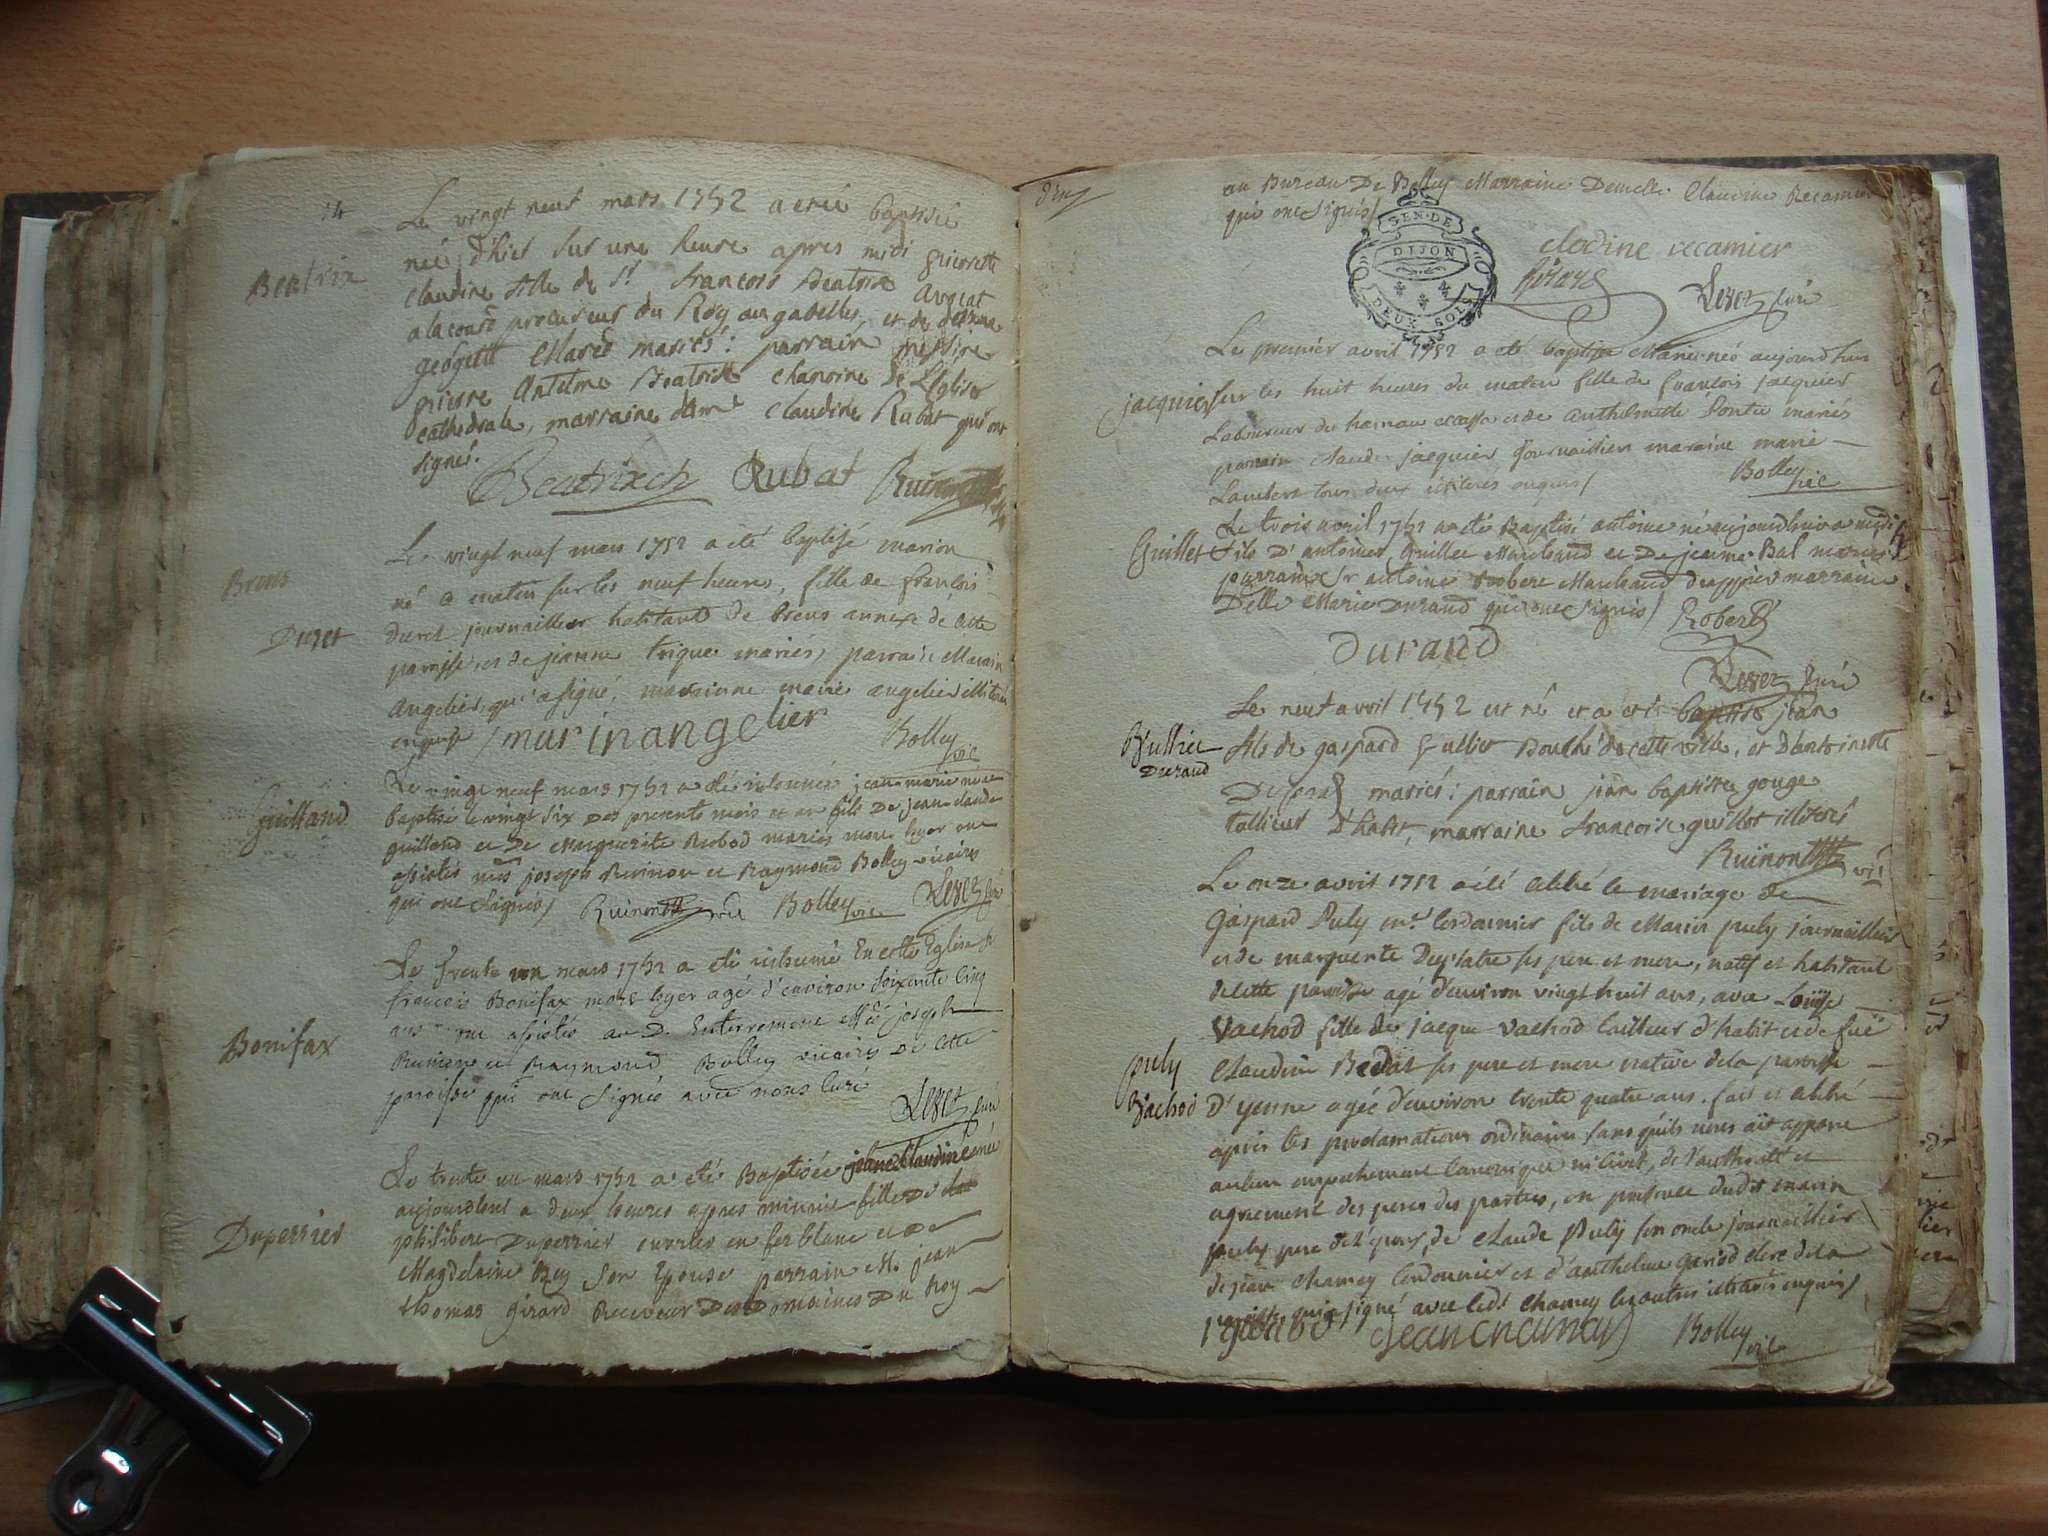 14
Le vingt neuf mars 1752 a eté baptisée
née d'hier sur une heure apres midi pierrette
Beatrix
claudine fille de Sr. francois Beatrix avocat
a la cour procureur du Roy aux gabelles, et de
georgette mariés: parrain messire
pierre Antelme Beatrix chanoine de L'Eglise
cathedrale, marraine dame Claudine Rubat qui ont
signé.
Beatrix ch Rubat Ruinon
Le vingt neuf mars 1752 a été baptisé marion
Brens
né ce matin sur les neuf heures, fille de francois
Duret
duret journaillier habitant de Brens annexe de cette
paroisse, et de jeanne trique mariés, parrain Marin
angelier qui a signé, marrienne marie angelier illiterée
enquise / marin angelier Bolley vic
Le vingt neuf mars 1752 a été inhumé jean marie né et
Guilland
baptisé le vingt six des presents mois et an fils De jean claude
guilland et De Marguerite Rubod mariés mort hyer ont
assistés mrs joseph Ruinon et Raymond Bolley vicaires
qui ont signés / Ruinon vic Bolley vic Leget curé
Le trente un mars 1752 a eté inhumé En cette Eglise
francois Bonifax mort hyer agé d'environ soixante cinq
Bonifax
ans ont assistés au D. Enterrement joseph
Ruinon et Raymond Bolley vicaires De cette
paroisse qui ont signé avec nous curé
Leget curé
Le trente un mars 1752 a eté Baptisée jeanne Claudine née
aujourdhui a deux heures apres minuit fille De
Duperrier
philibert Duperrier ouvrier en fer blanc et de
Magdelaine Rey son Epouse parrain M. jean
thomas girard Receveur Des Domaines Du Roy
au Bureau De Belley Marraine Demelle. Claudine Recamier
qui ont signés /
GEN. DE
DIJON
DEUX SOLS
clodine recamier
Leget curé
Le premier avril 1752 a eté baptisée Marie née aujourdhui
jacquier
sur les huit heures du matin fille de francois jacquier
Laboureur du hameau et de anthelmette Pontu mariés
parrain claude jacquier journaillier maraine marie
Lambert tous deux illiterés enquis / Bolley vic
Le trois avril 1752 a eté Baptisé antoine né aujourdhui a midi
Guillet
fils D'antoine Guillet Marchand et De jeanne Bal mariés
parrain Sr antoine Robert Marchand drappier marraine
Delle Marie Durand qui ont signés / Robert
Durand
Leget Curé
Le neuf avril 1752 est né et a eté baptisé jean
Bullier
Durand
fils de gaspard Bullier Bouché de cette ville, et d'antoinette
Durand mariés: parrain jean baptiste gouge
tallieur d'habit, marraine francoise guillot illiterés
Ruinon vic
Le onze avril 1752 a été celebré le mariage de
gaspard Puly mr. Cordonnier fils de Marin puly journaillier
et de marguerite Duplatre ses pere et mere, natif et habitant
de cette paroisse agé d'environ vingt huit ans, avec Louise
Vachod fille de jacque Vachod tailleur d'habit et de feüe
puly
Claudine Bedat ses pere et mere native de la paroisse
Vachod
D'yenne agée d'environ trente quatre ans. fait et celebré
apres les proclamations ordinaires sans qu'ils nous ait apparu
aucun empechement canonique ni civil, de l'authorité et
agreement des peres des parties, en presence dudit marin
puly pere de l'epoux, de Claude Puly son oncle journaillier
de jean chamcy cordonnier et d'anthelme gariod clerc de la
qui a signé avec led. chamcy les autres illiterés enquis /
jean chamcy Bolley vic